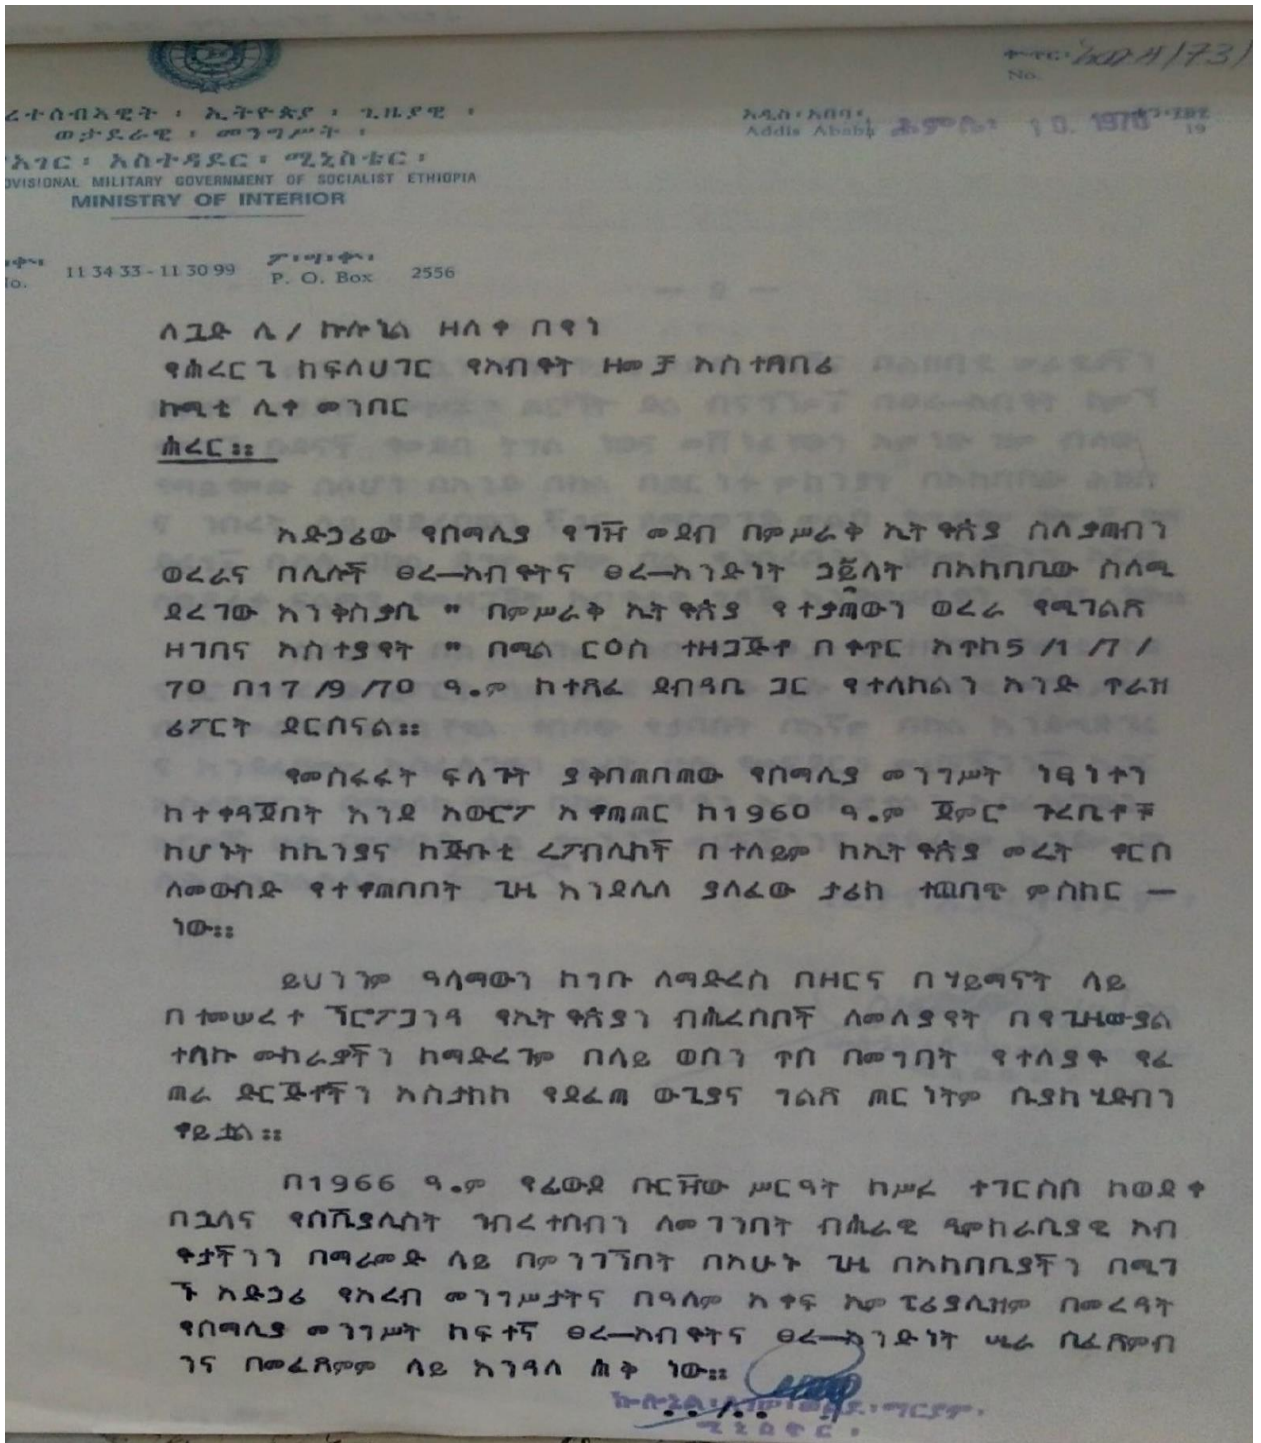 ቍጥር፡
No.
ኅብረተሰብኣዊት ፡ ኢትዮጵያ ፡ ጊዜያዊ ፡
ወታደራዊ ፡ መንግሥት ፡
አገር ፡ አስተዳደር ፡ ሚኒስቴር ፡
OVISIONAL MILITARY GOVERNMENT OF SOCIALIST ETHIOPIA
MINISTRY OF INTERIOR
አዲስ፡አበባ፡
Addis Ababa 10. 1970 19
11 34 33 - 11 30 99 ፖ፡ሣ፡ቍ፡
No. P. O. Box 2556
ለጓድ ሌ/ ኮሎኔል ዘለቀ በየነ
የሐረርጌ ከፍለሀገር የአብዮት ዘመቻ አስተባባሪ
ኮሚቴ ሊቀ መንበር
ሐረር።
አድኃሪው የሶማሊያ የገዥ መደብ በምሥራቅ ኢትዮጵያ ስለቃጣብን
ወረራና በሌሎች ፀረ—አብዮትና ፀረ—አንድነት ኃይላት በአካባቢው ስለሚ
ደረገው እንቅስቃሴ " በምሥራቅ ኢትዮጵያ የተቃጣውን ወረራ የሚገልጽ
ዘገባና አስተያየት " በሚል ርዕስ ተዘጋጅቶ በቀጥር አጥከ5/1/7/
70 በ17/9/70 ዓ.ም ከተጻፈ ደብዳቤ ጋር የተላከልን አንድ ጥራዝ
ሪፖርት ደርሶናል።
የመስፋፋት ፍላጐት ያቅበጠበጠው የሶማሊያ መንግሥት ነፃነተን
ከተቀዳጀበት እንደ አውሮፖ አቆጣጠር ከ1960 ዓ.ም ጀምሮ ጐረቤቶቹ
ከሆኑት ከኬንያና ከጅቡቲ ሪፖብሊኮች በተለይም ከኢትዮጵያ መሬት ቆርሶ
ለመውሰድ የተቆጠበበት ጊዜ እንደሌለ ያለፈው ታሪክ ተጨባጭ ምስክር —
ነው።
ይህንንም ዓላማውን ከግቡ ለማድረስ በዘርና በሃይማኖት ላይ
በተመሠረተ ፕሮፖጋንዳ የኢትዮጵያን ብሔረሰቦች ለመለያየት በየጊዜው ያል
ተሳኩ ሙከራዎችን ከማድረጉም በላይ ወሰን ጥሶ በመግባት የተለያዩ የፈ
ጠራ ድርጅቶችን አስታኮ የደፈጣ ውጊያና ግልጽ ጦርነትም ሲያካሂድብን
ቆይቷል።
በ1966 ዓ.ም የፊውዶ ቡርዥው ሥርዓት ከሥሩ ተገርስሶ ከወደቀ
በኋላና የሶሻሊስት ኀብረተሰብን ለመገንባት ብሔራዊ ዲሞክራሲያዊ አብ
ዮታችንን በማራመድ ላይ በምንገኝበት በአሁኑ ጊዜ በአካባቢያችን በሚገ
ኙ አድኃሪ የአረብ መንግሥታትና በዓለም አቀፍ ኢምፔሪያሊዝም በመረዳት
የሶማሊያ መንግሥት ከፍተኛ ፀረ—አብዮትና ፀረ—አንድነት ሤራ ሲፈጽምብ
ንና በመፈጸምም ላይ እንዳለ ሐቅ ነው።
../..